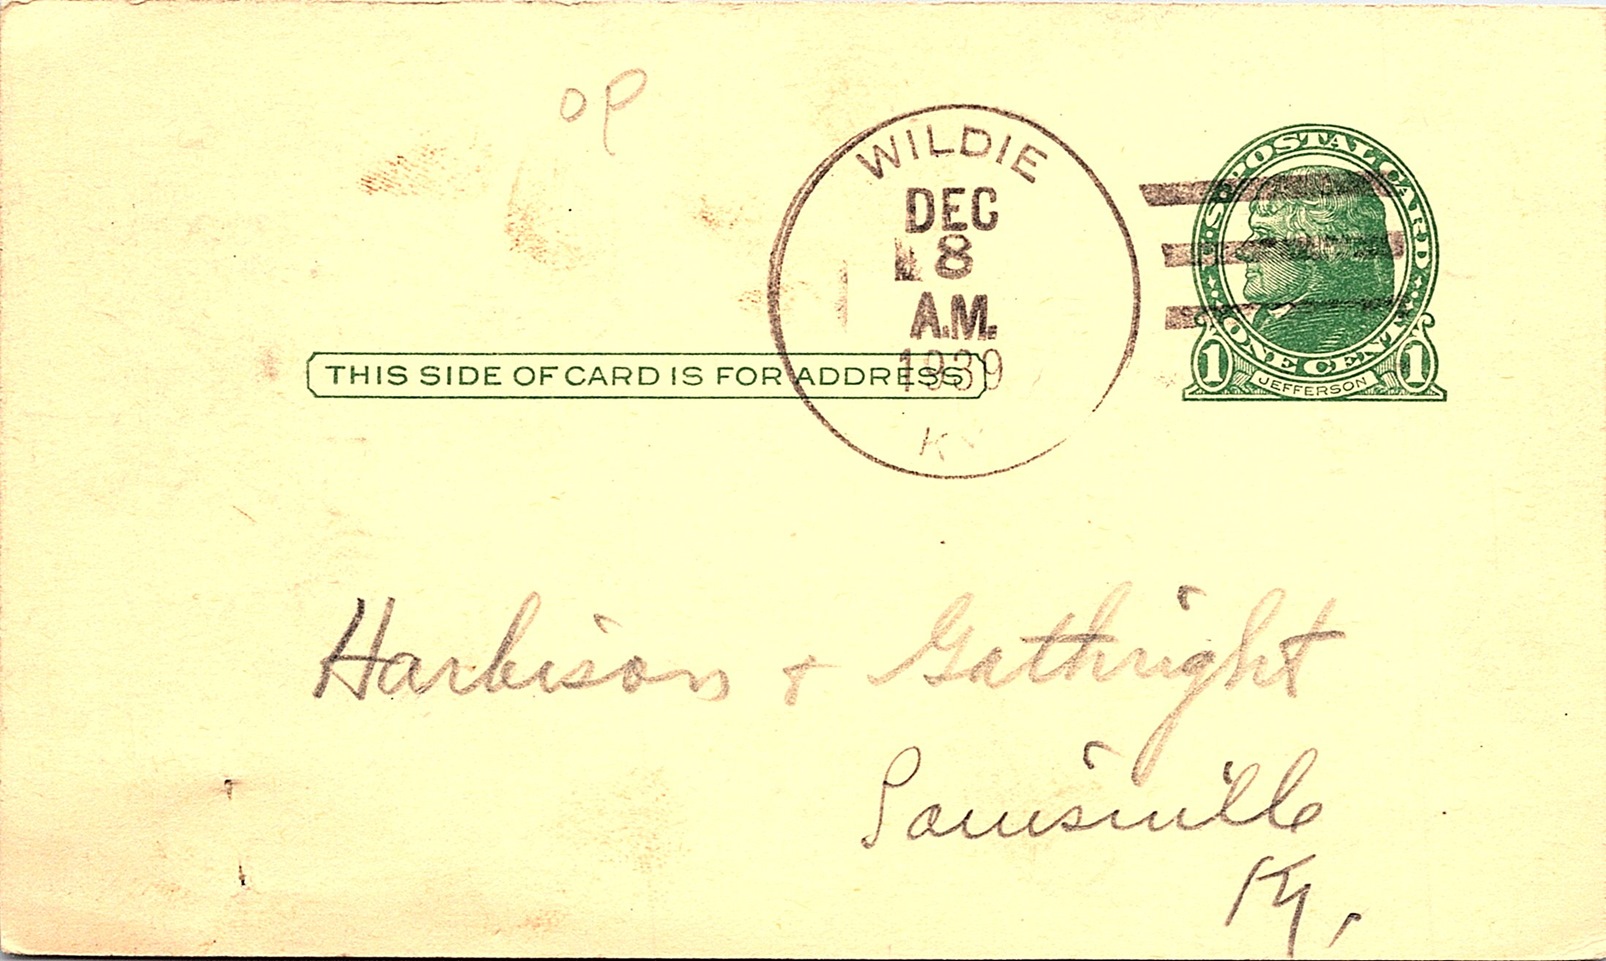 OP
WILDIE
DEC
8
A.M.
1939
KY
U.S. POSTAL CARD
ONE CENT
1 1
JEFFERSON
THIS SIDE OF CARD IS FOR ADDRESS
Harbison + Gathright
Louisville
Ky.